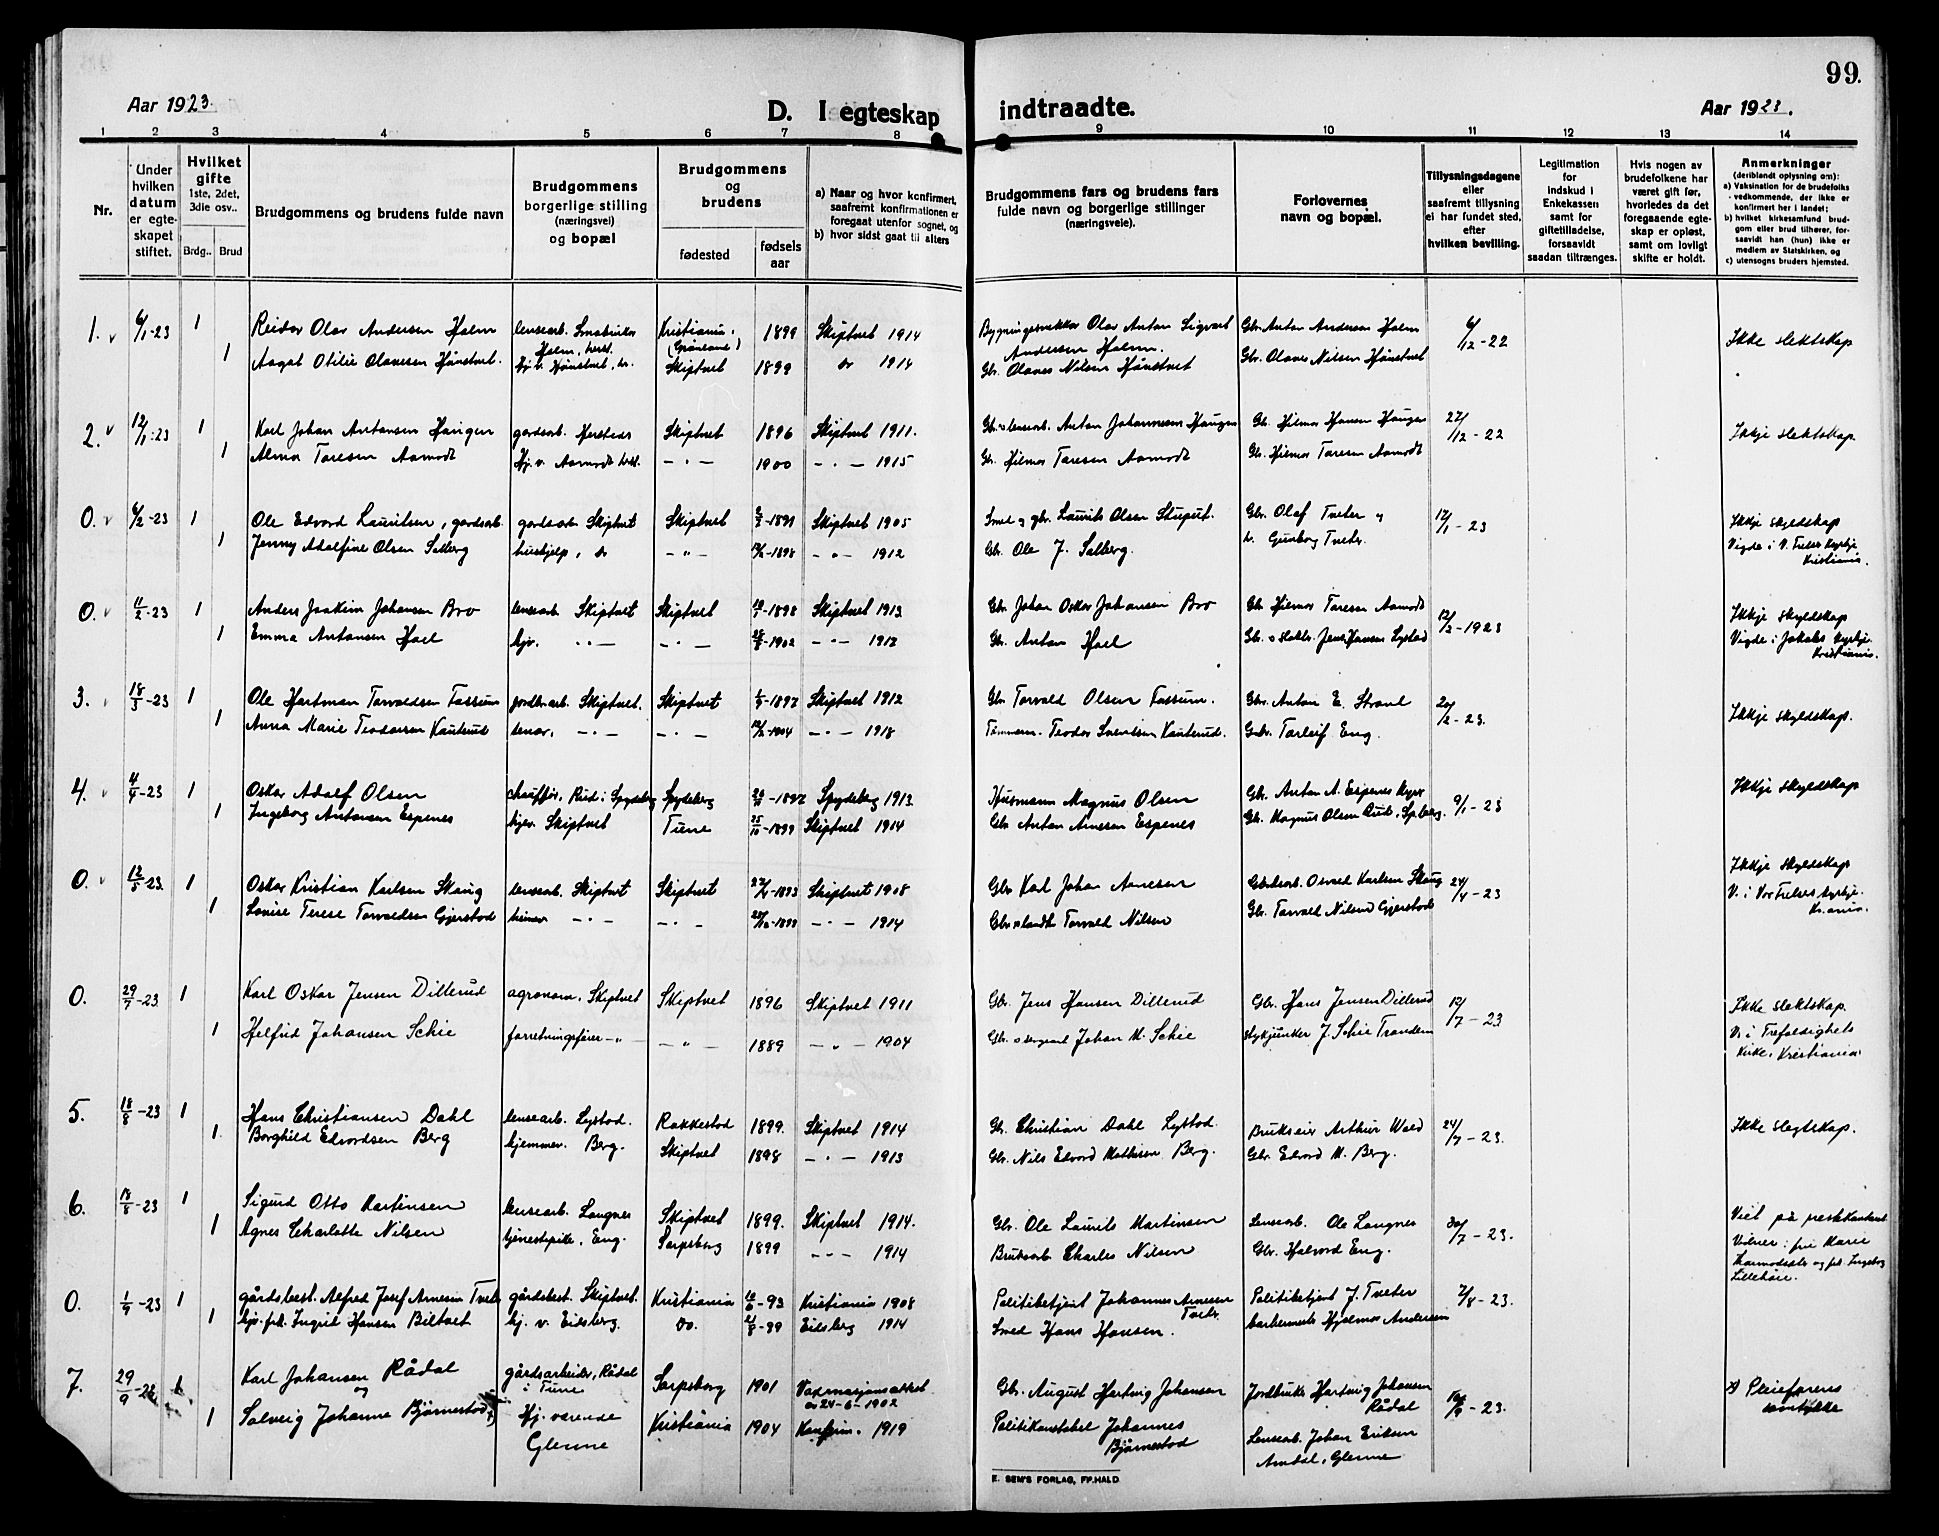 99.
Aar 1923.
D. I egteskap indtraadte.
Aar 1923.
1 2 3 4 5 6 7 8 9 10 11 12 13 14
Nr.
Under hvilken datum er egteskapet stiftet.
Hvilket gifte 1ste, 2det, 3die osv..
Brdg.. Brud
Brudgommens og brudens fulde navn
Brudgommens borgerlige stilling (næringsvei) og bopæl
Brudgommens og brudens
fødested
fødselsaar
a) Naar og hvor konfirmert, saafremt konfirmationen er foregaat utenfor sognet, og
b) hvor sidst gaat til alters
Brudgommens fars og brudens fars fulde navn og borgerlige stillinger (næringsveie).
Forlovernes navn og bopæl.
Tillysningsdagene eller saafremt tillysning ei har fundet sted, efter hvilken bevilling.
Legitimation for indskud i Enkekassen samt for giftetilladelse, forsaavidt saadan tiltrænges.
Hvis nogen av brudefolkene har været gift før, hvorledes da det foregaaende egteskap er opløst, samt om lovligt skifte er holdt.
Anmerkninger (deriblandt oplysning om):
a) Vaksination for de brudefolks vedkommende, der ikke er konfirmert her i landet;
b) hvilket kirkesamfund brudgom eller brud tilhører, forsaavidt han (hun) ikke er medlem av Statskirken, og
c) utensogns bruders hjemsted.
1. 6/1-23 1 Reidar Olav Andersen Holm lensearb. Kristiania 1899 Skiptvet 1914 Olav Anton Sigvart Andersen Holm. Gbr. Anton Andersen Holm 6/12-22 Ikke slektskap
1 Aagot Otilie Olavesen Hånstvet. Hj. v. Hånstvet, hr. Skiptvet 1899 do 1914 Gbr. Olaves Nilsen Hånstvet Gbr. Olaves Nilsen Hånstvet
2. 12/1-23 1 Karl Johan Antonsen Haugen gardsarb. Skiptvet 1896 Skiptvet 1911. Gbr. Anton Johannesen Haugen Gbr. Hilmar Hansen Haugen 27/12-22 Ikkje slektskap
1 Alma Taresen Aamodt Hj. v. Aamodt - " - 1900 - " - 1915 Gbr. Hilmar Taresen Aamodt Gbr. Hilmar Taresen Aamodt
0. 6/2-23 1 Ole Edvard Lauritsen, gardsarb. gardsarb. Skiptvet Skiptvet Skiptvet 1905 Smed og gbr. Laurits Olsen Gbr. Olaf Tveter 12/1-23 Ikkje skyldskap
1 Jenny Adolfine Olsen Solberg hushjelp, do - " - 1898 - " - 1912 Gbr. Ole J. Solberg. Gunborg Tveter. Vigde i V. Frelsers Kyrkje Kristiania.
0. 11/2-23 1 Anders Joakim Johansen Bro lensearb. Skiptvet Skiptvet 1898 Skiptvet 1913. Gbr. Johan Oskar Johansen Bro Gbr. Hilmar Taresen Aamodt 12/2-1923 Ikkje skyldskap
1 Emma Antonsen Hoel hjv. - " - - " - 1902 - " - 1917 Gbr. Anton Hoel Jens Hansen Lystad Vigde i Jakobs kyrkje. Kristiania.
3. 18/3-23 1 Ole Hartman Torvaldsen Fossum jordbr.arb. Skiptvet. Skiptvet 1897 Skiptvet 1912 Gbr. Torvald Olsen Fossum. Gbr. Anton E. Strand 20/2-23. Ikkje skyldskap.
1 Anna Marie Teodorsen Kanterud - " - - " - 1904 - " - 1918 Tømmerm. Teodor Svendsen Kanterud. Gbr. Torleif Eng.
4. 4/4-23 1 Oskar Adolf Olsen chauffør, Rud i Spydeberg Spydeberg 1897 Spydeberg 1913. Husmann Magnus Olsen Gbr. Anton A. Espenes 9/1-23 Ikkje skyldskap
1 Ingeborg Antonsen Espenes hjv. Skiptvet Tune 25/10-1899 Skiptvet 1914 Gbr. Anton Arnesen Espenes Gbr. Magnus Olsen Rud, Sp.berg.
0. 12/5-23. 1 Oskar Kristian Karlsen Skaug lensearb. Skiptvet Skiptvet 1893 Skiptvet 1908 Gbr. Karl Johan Arnesen Osvald Karlsen Skaug 24/4-23 Ikkje skyldskap
1 Louise Terese Torvaldsen Gjerstad - " - - " - 1899 - " - 1914 Torvald Nilsen Gbr. Torvald Nilsen Gjerstad V. i Vor Frelsers kyrkje.
0. 29/7-23 1 Karl Oskar Jensen Dillerud agronom, Skiptvet Skiptvet 1896 Skiptvet 1911 Gbr. Jens Hansen Dillerud Gbr. Hans Jensen Dillerud 12/7-23 Ikke slektskap.
1 Helfrid Johansen Schie forretningsfører - " - - " - 1889 - " - 1904 Johan M. Schie J. Schie Trandem V. i Trefoldighets Kirke, Kristiania.
5. 18/8-23 1 Hans Christiansen Dahl lensearb. Lystad. Rakkestad 1899. Skiptvet 1914 Gbr. Christian Dahl Lystad. Brukseier Arthur Wold 24/7-23. Ikke slegtskap.
1. Borghild Edvardsen Berg hjemmev. Berg. Skiptvet 1898 - " - 1913 Gbr. Nils Edvard Mathisen Berg. Gbr. Edvard M. Berg.
6. 18/8-23 1 Sigurd Otto Martinsen lensearb. Langnes Skiptvet 1899. Skiptvet 1914. Gbr. Ole Laurits Martinsen Lensearb. Ole Langnes 30/7-23. Viet på prestekontoret
1 Agnes Charlotte Nilsen tjenestepike, Eng. Sarpsborg 1899 - " - 1914 Bruksarb Charles Nilsen Gbr. Halvord Eng. Vidner: frk Marie og frk. Ingeborg
0. 1/9-23 1 gårdsbest. Alfred Josef Arnesen Tveter gårdsbest. Skiptvet. Kristiania 10/6-93 Kristiania 1908 Politibetjent Johannes Arnesen Tveter. Politibetjent J. Tveter 7/8-23.
1 hjv. frk. Ingrid Hansen Biltvet hj. v. Eidsberg. do. 21/8-99 Eidsberg 1914 Smed Hans Hansen. Hjalmar Andersen
7. 29/9-23 1 Karl Johansen Rådal gårdsarbeider, Rådal i Tune Sarpsborg 1901 Vaxinasjonsattest av 24-6-1902 Gbr. August Hartvig Johansen Jordbruker Hartvig Johansen Rådal 10/9-23. x) Pleiefarens samtykke
og
1 Solveig Johanne Bjørnestad x) Hj. værende Glenne Kristiania 1904 Konfirm. 1919 Politikonstabel Johannes Bjørnestad Lensearb. Johan Eriksen Amdal, Glenne
E. SEM'S FORLAG, FR.HALD